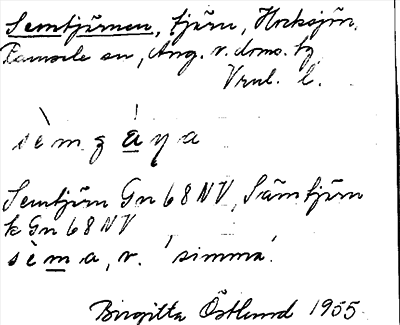 Semtjärnen, tjärn, Hocksjön,
Ramsele sn, Ång. v. doms. tg
Vrul. l.
sèmzàŋa
Semtjärn Gn 68 NV, Sämtjärn
k Gn 68 NV
sèma, v. 'simma'.
Birgitta Östlund 1955.